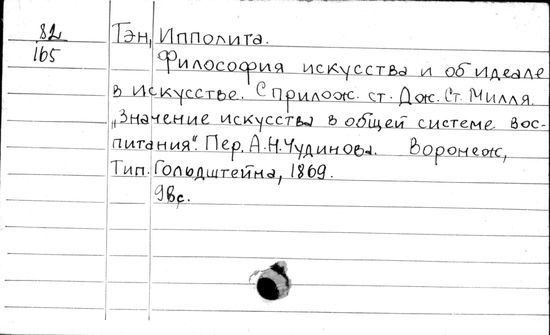 82 Тэн, Ипполита.
165
Философия искусства и об идеале
в искусстве. С прилож. ст. Дж. Ст. Милля.
„Значение искусства в общей системе вос-
питания". Пер. А.Н. Чудинова. Воронеж,
Тип. Гольдштейна, 1869.